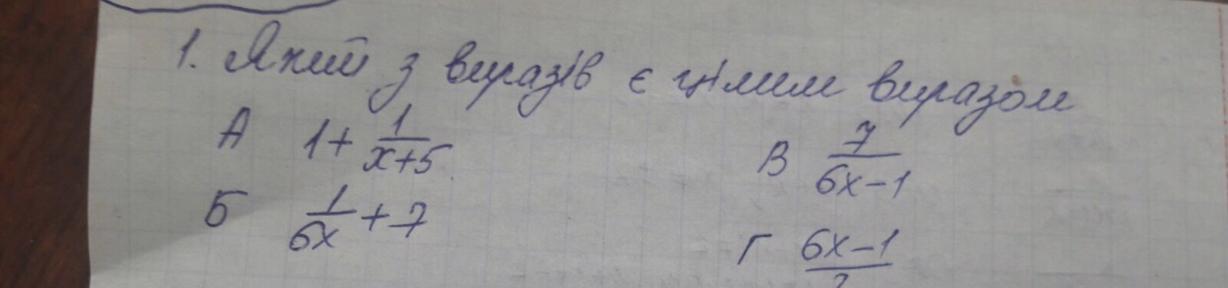 1. Який з виразів є цілим виразом
А 1 + 1/(x+5)
В 7/(6x-1)
Б 1/(6x) + 7
Г 6x-1